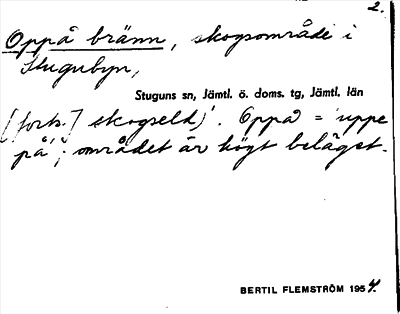 2.
Oppå bränn, skogsområde i
Stugubyn,
Stuguns sn, Jämtl. ö. doms. tg, Jämtl. län
[forts.] skogseld)'. Oppå = 'uppe
på'; området är högt beläget.
BERTIL FLEMSTRÖM 1954.